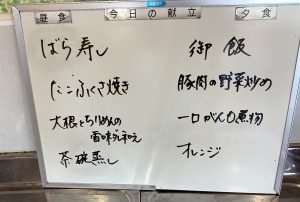 昼食
今日の献立
夕食
ばら寿し
たこふくさ焼き
大根とちりめんの
香味ダレ和え
茶碗蒸し
御飯
豚肉の野菜炒め
一口がんの煮物
オレンジ